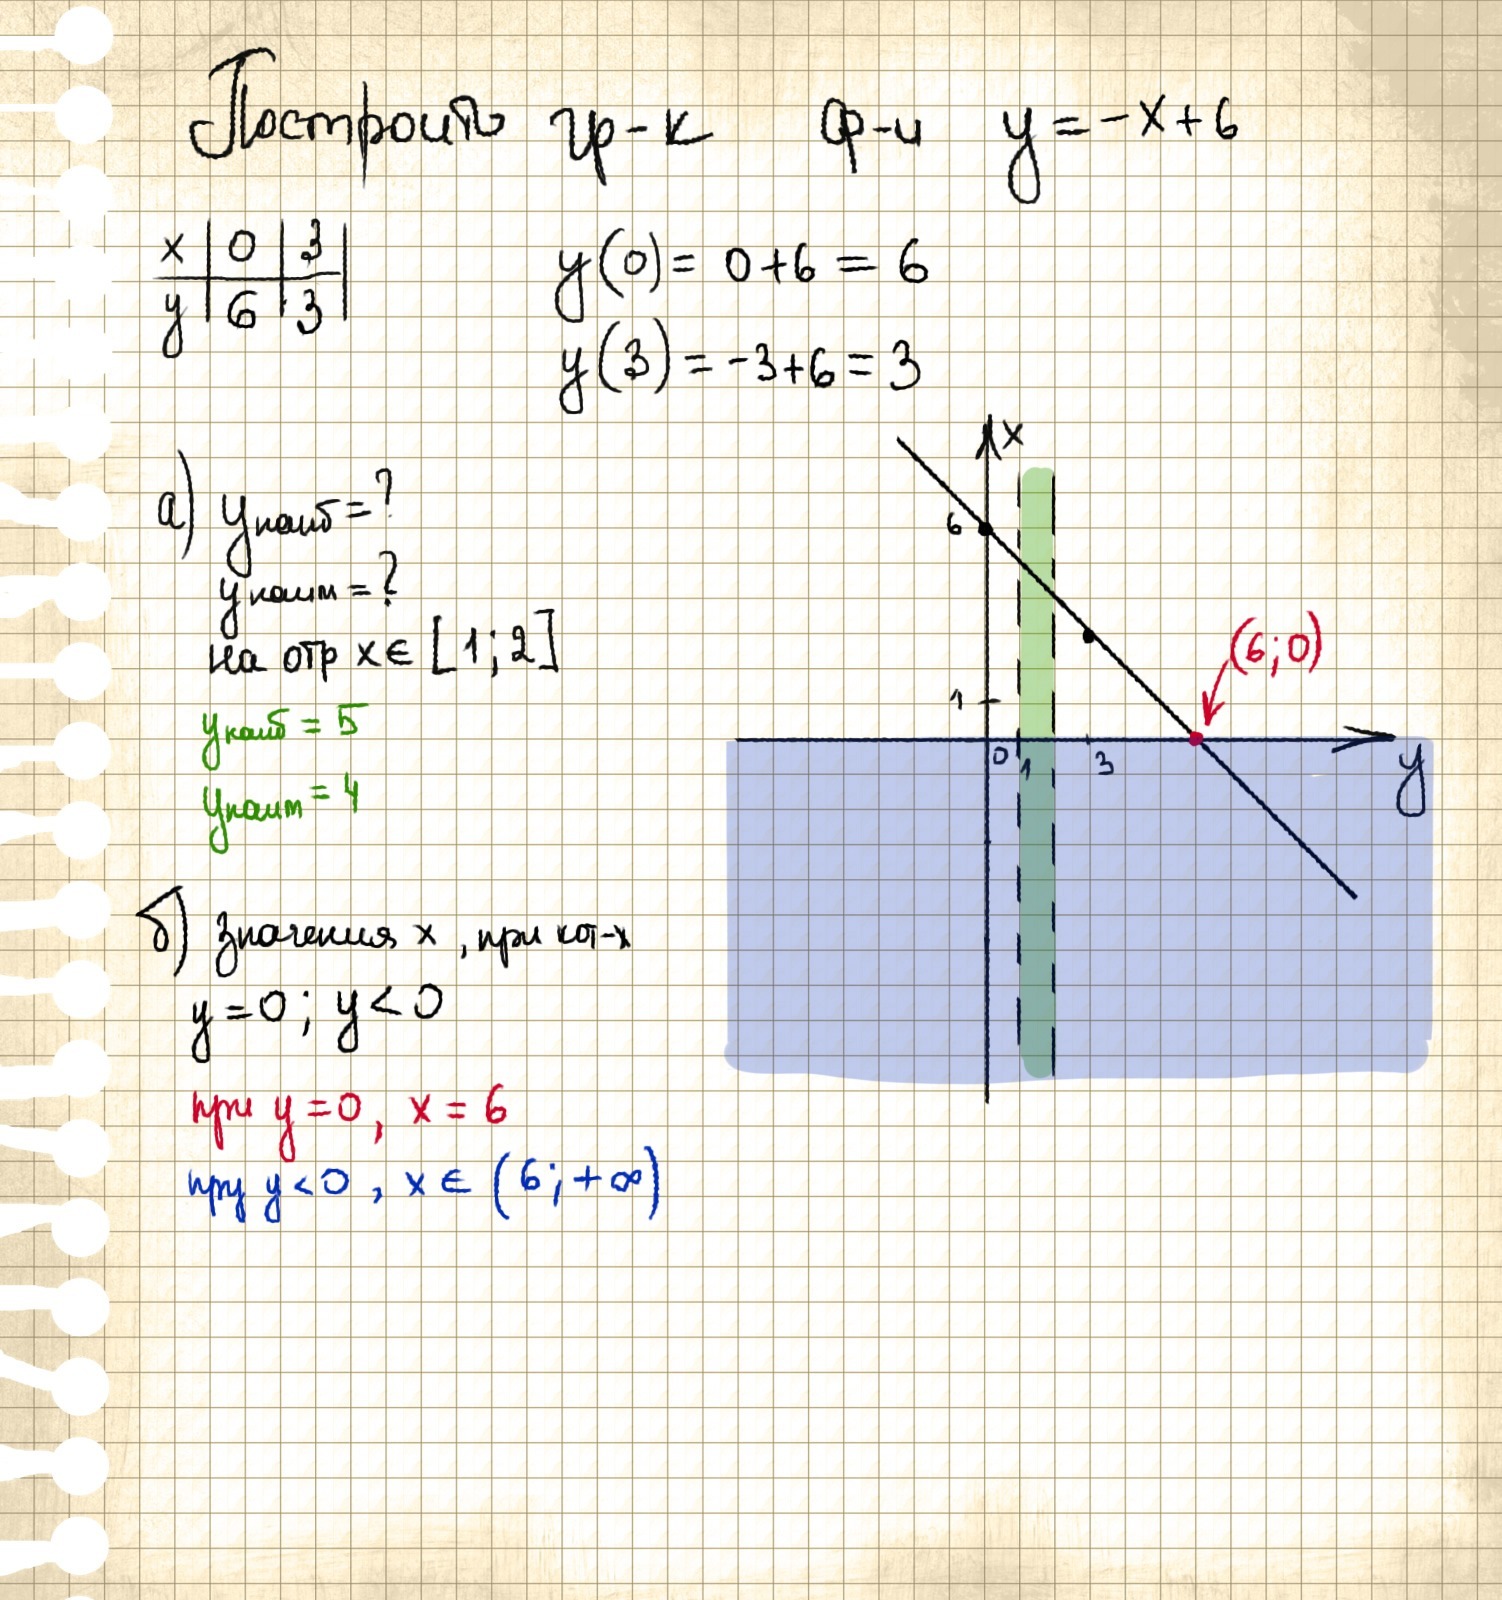 Построить гр-к ф-и y = -x + 6
x | 0 | 3 |
y | 6 | 3 |
y(0) = 0+6 = 6
y(3) = -3+6 = 3
а) y наиб = ?
y наим = ?
на отр x ∈ [1; 2]
y наиб = 5
y наим = 4
б) значения x, при кот-х
y = 0; y < 0
при y = 0, x = 6
при y < 0, x ∈ (6; +∞)
x
6
(6; 0)
1
0 1 3
y